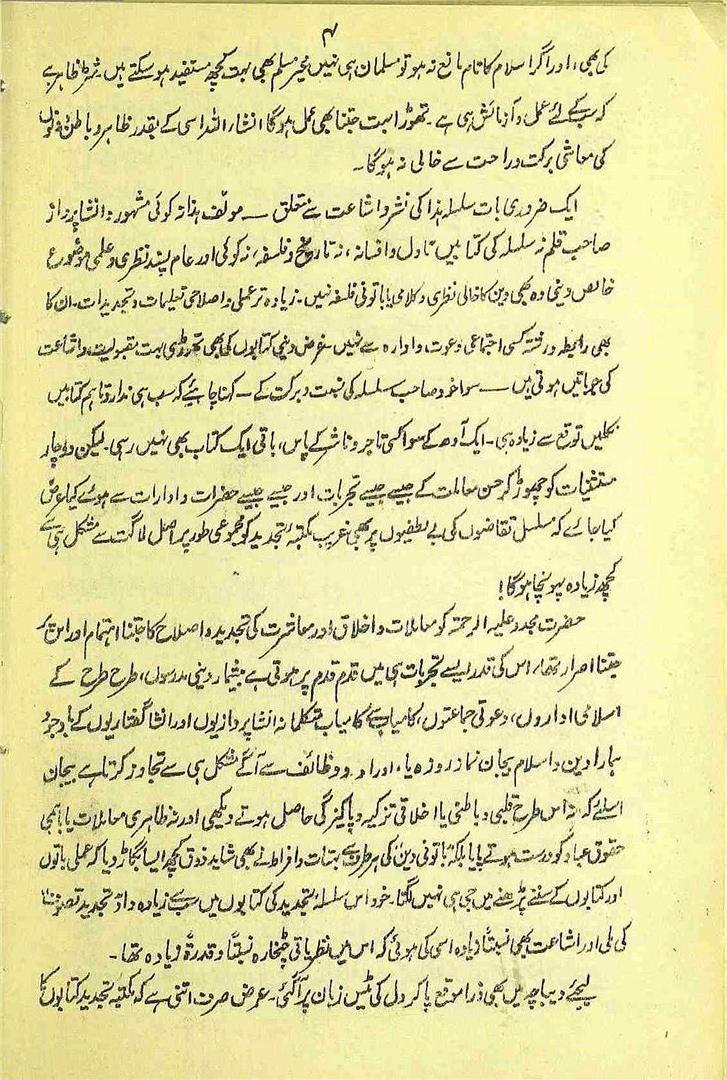 ۴
کی بھی، اور اگر اسلام کا نام مانع نہ ہو تو مسلمان ہی نہیں غیر مسلم بھی بہت کچھ مستفید ہو سکتے ہیں شرط ظاہر ہے
کہ سب کے لئے عمل و آزمائش ہی ہے۔ تھوڑا بہت جتنا بھی عمل ہوگا انشاء اللہ اسی کے بقدر ظاہر و باطن دونوں
کی معاشی برکت و راحت سے خالی نہ ہوگا۔
ایک ضروری بات سلسلہ ہذا کی نشر و اشاعت سے متعلق — مولف ہذا نہ کوئی مشہور، انشا پرداز
صاحب قلم نہ سلسلہ کی کتابیں ناول و افسانہ، نہ تاریخ و فلسفہ، نہ کوئی اور عام پسند نظری و علمی موضوع
خالص دینی وہ بھی دین کا خالی نظری و کلامی یا باتونی فلسفہ نہیں۔ زیادہ تر عملی و اصلاحی تعلیمات و تجدیدات۔ ان کا
بھی رابطہ و رشتہ کسی اجتماعی دعوت و ادارہ سے نہیں غرض دینی کتابوں کی بھی تھوڑی بہت مقبولیت و اشاعت
کی جو باتیں ہوتی ہیں — سوا خود صاحب سلسلہ کی نسبت و برکت کے — کہنا چاہئے کہ سب ہی ندارد تاہم کتابیں
نکلیں توقع سے زیادہ ہی۔ ایک آدھ کے سوا کسی تاجر و ناشر کے پاس، باقی ایک کتاب بھی نہیں رہی۔ لیکن دو چار
مستثنیات کو چھوڑ کر حسن معاملت کے جیسے جیسے تجربات اور جیسے جیسے حضرات و ادارات سے ہوئے کیا عرض
کیا جائے کہ مسلسل تقاضوں کی بے لطفیوں پر بھی غریب مکتبۂ تجدید کو مجموعی طور پر اصل لاگت سے مشکل ہی سے
کچھ زیادہ پہونچا ہوگا!
حضرت مجدد علیہ الرحمۃ کو معاملات و اخلاق اور معاشرت کی تجدید و اصلاح کا جتنا اہتمام اور اس پر
جتنا اصرار تھا، اس کی قدر ایسے تجربات ہی میں قدم قدم پر ہوتی ہے بیشمار دینی مدرسوں، طرح طرح کے
اسلامی اداروں، دعوتی جماعتوں، کامیاب سے کامیاب متکلمانہ انشا پردازیوں اور انشا گفتاریوں کے باوجود
ہمارا دین و اسلام بیجان نماز روزہ یا، اوراد و وظائف سے آگے مشکل ہی سے تجاوز کرتا ہے بیجان
اسلئے کہ نہ اس طرح قلبی و باطنی یا اخلاقی تزکیہ و پاکیزگی حاصل ہوتے دیکھی اور نہ ظاہری معاملات یا باہمی
حقوق عباد کو درست ہوتے پایا بلکہ باتونی دین کی ہر طرف سے بہتات و افراط نے بھی شاید ذوق کچھ ایسا بگاڑ دیا کہ عملی باتوں
اور کتابوں کے سننے پڑھنے میں جی ہی نہیں لگتا۔ خود اس سلسلۂ تجدید کی کتابوں میں سب سے زیادہ داد تجدید تصوف
کی ملی اور اشاعت بھی نسبتاً زیادہ اسی کی ہوئی کہ اس میں نظریاتی چٹخارہ نسبتاً و قدرۃً زیادہ تھا۔
لیجئے دیباچہ میں بھی ذرا موقع پا کر دل کی ٹیس زبان پر آ گئی۔ عرض صرف اتنی ہے کہ مکتبۂ تجدید کتابوں کا